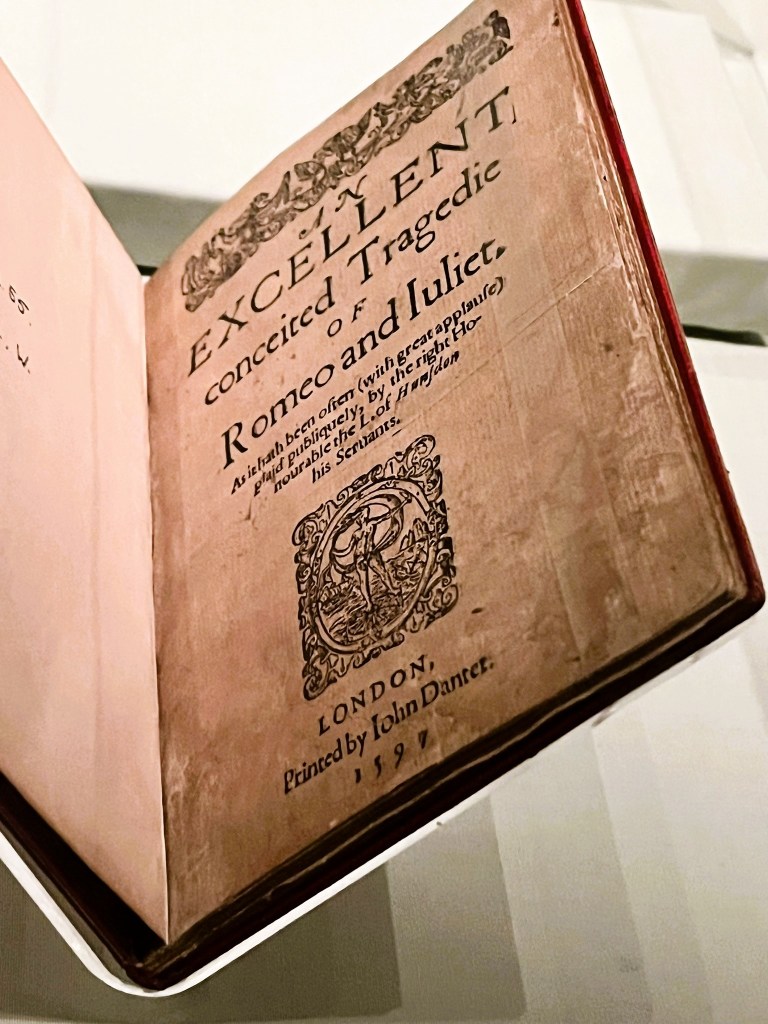 65.
AN
EXCELLENT
conceited Tragedie
OF
Romeo and Iuliet.
As it hath been often (with great applause)
plaid publiquely, by the right Ho-
nourable the L. of Hunsdon
his Seruants.
LONDON,
Printed by Iohn Danter.
1597